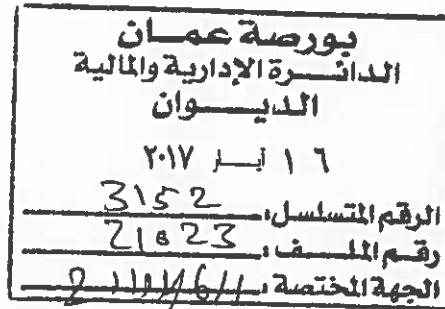 بورصة عمان
الدائرة الإدارية والمالية
الديوان
١٦ أيار ٢٠١٧
الرقم المتسلسل: 3152
رقم الملف: 21023
الجهة المختصة: